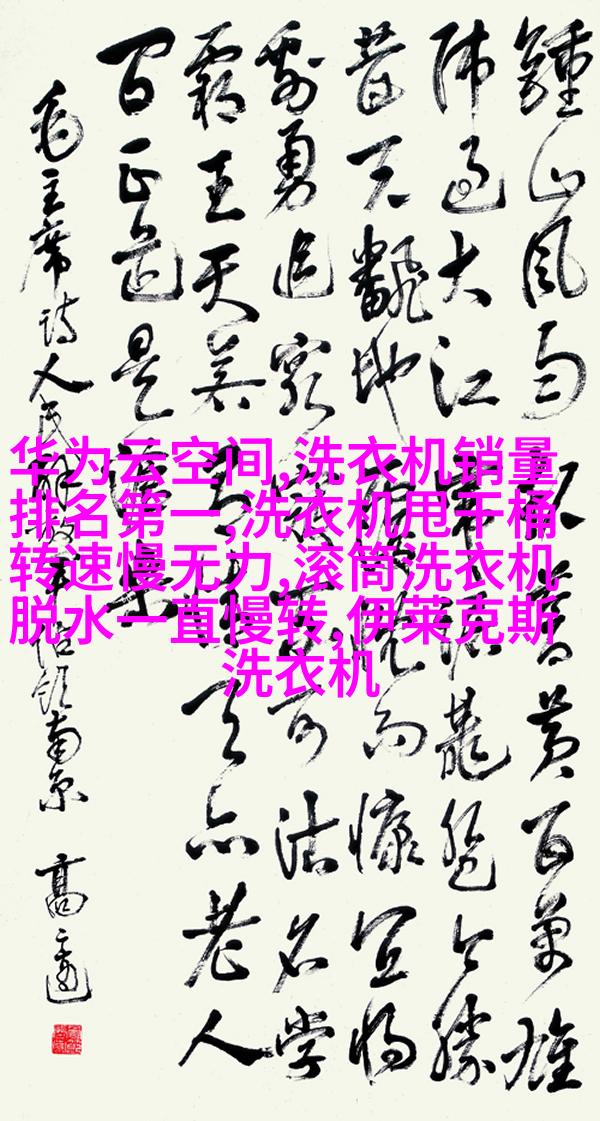 华为云空间,洗衣机销量
排名第一,洗衣机甩干桶
转速慢无力,滚筒洗衣机
脱水一直慢转,伊莱克斯
洗衣机
鍾山風雨蒼黄百萬雄
师过大江龍盘今勝
昔天翻地慨而慷宜将
剩勇追窮寇不可沽名学
霸王天若有情天亦老人
间正道是滄桑
毛主席诗人民解放军占领南京